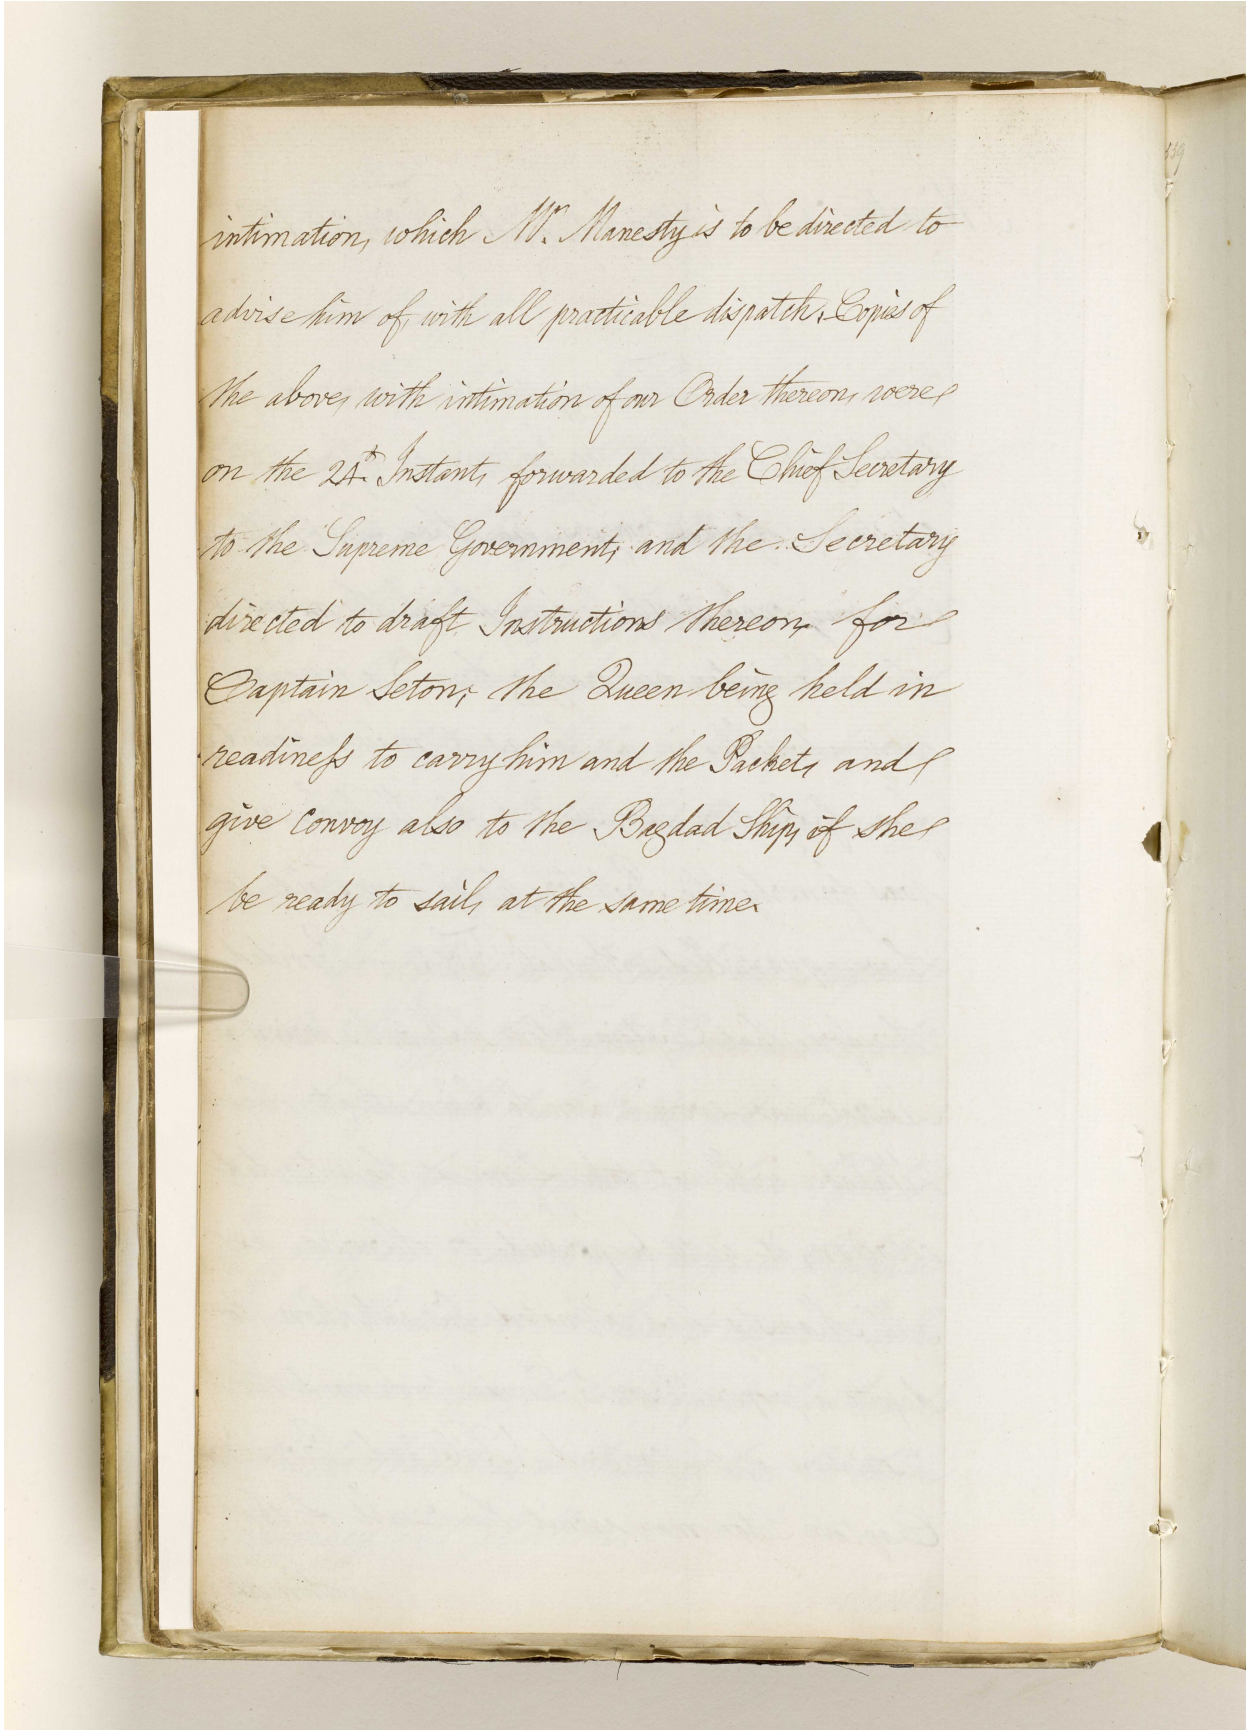 intimation, which Mr. Manesty is to be directed to
advise him of, with all practicable dispatch. Copies of
the above, with intimation of our Order thereon, were
on the 24th. Instant, forwarded to the Chief Secretary
to the Supreme Government, and the Secretary
directed to draft Instructions thereon, for
Captain Seton; the Queen being held in
readineſs to carry him and the Packet, and
give convoy also to the Bagdad Ship, if she
be ready to sail, at the same time.